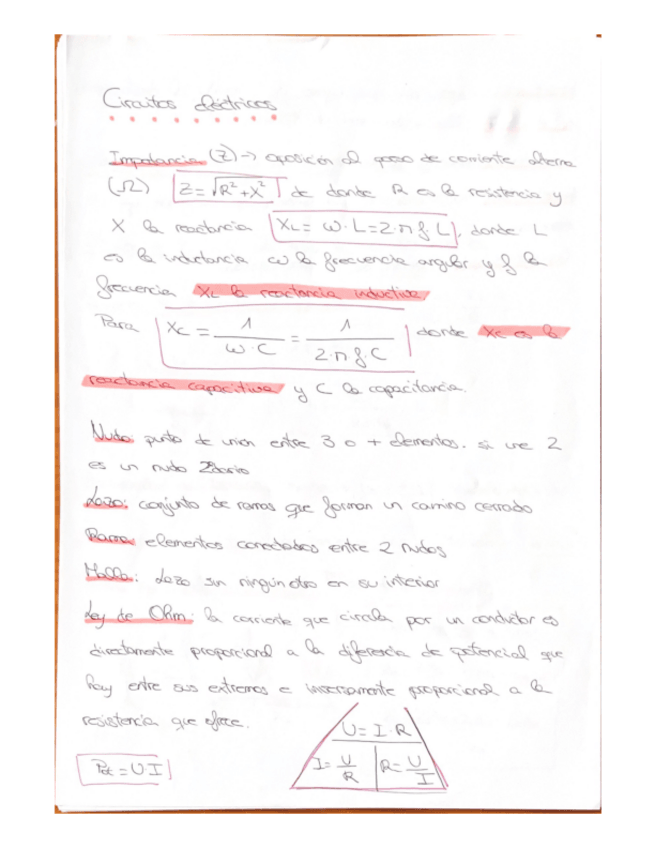 Circuitos eléctricos
Impedancia (Z) -> oposición al paso de corriente alterna
(Ω) Z = √R²+X² de donde R es la resistencia y
X la reactancia XL = ω·L = 2·π·f·L, donde L
es la inductancia ω la frecuencia angular y f la
frecuencia XL la reactancia inductiva
Para XC = 1/ω·C = 1/2·π·f·C donde XC es la
reactancia capacitiva y C la capacitancia.
Nudo: punto de unión entre 3 o + elementos. si une 2
es un nudo 2dario
Lazo: conjunto de ramas que forman un camino cerrado
Rama: elementos conectados entre 2 nudos
Malla: Lazo sin ningún otro en su interior
Ley de Ohm: la corriente que circula por un conductor es
directamente proporcional a la diferencia de potencial que
hay entre sus extremos e inversamente proporcional a la
resistencia que ofrece.
U = I·R
Pot = U·I I = U/R R = U/I